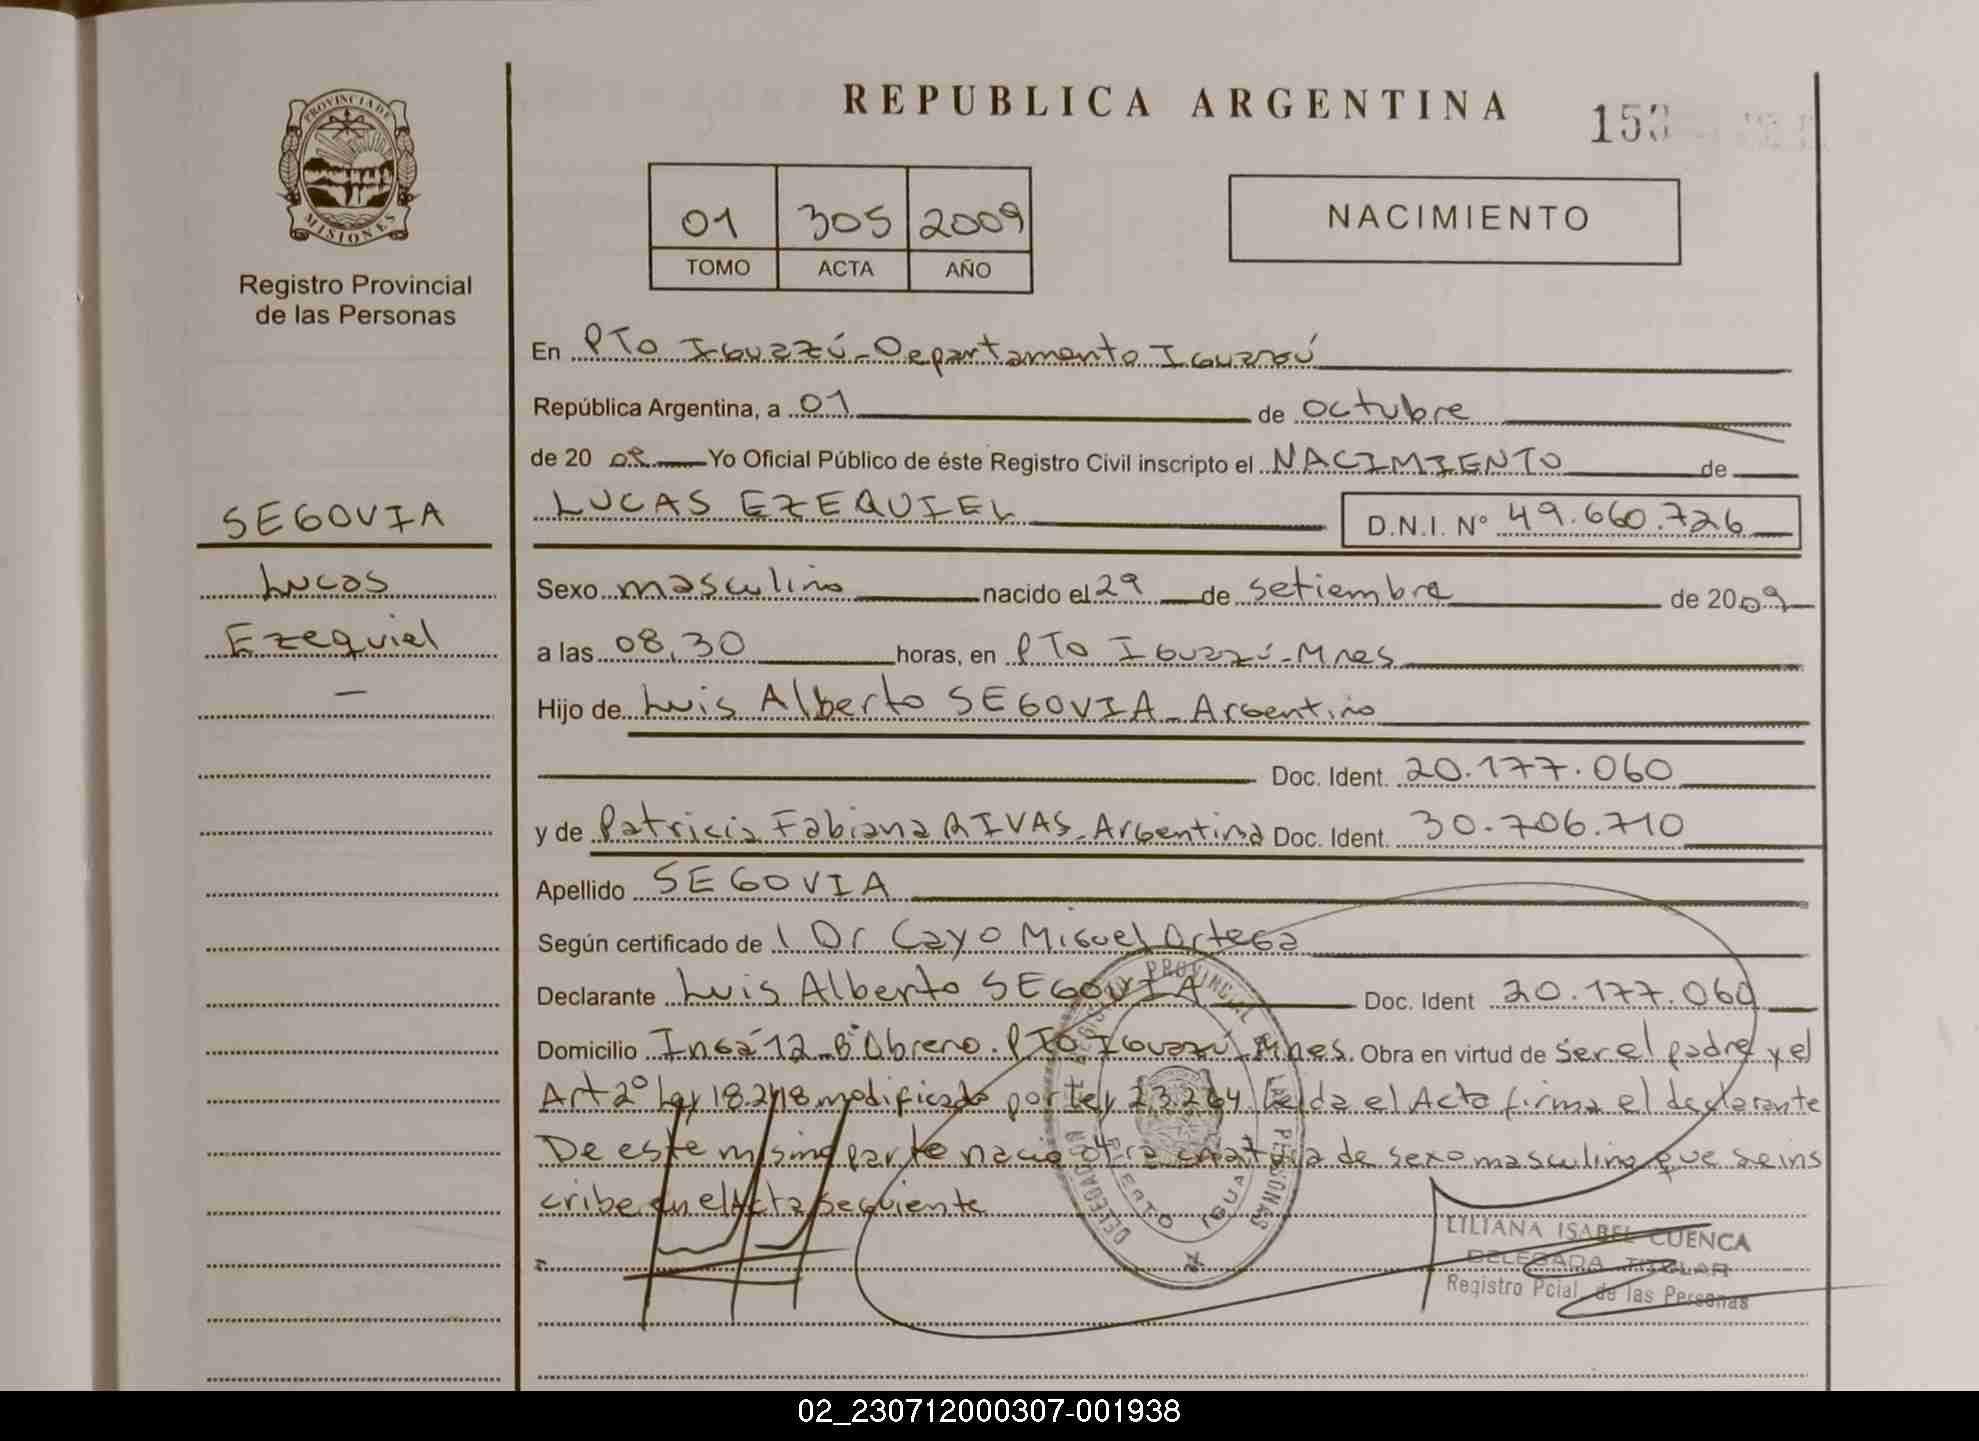 REPUBLICA ARGENTINA
153
PROVINCIA DE
MISIONES
Registro Provincial
de las Personas
01 305 2009
TOMO ACTA AÑO
NACIMIENTO
En PTo Iguazú - Departamento Iguazú
República Argentina, a 01 de octubre
de 20 09 Yo Oficial Público de éste Registro Civil inscripto el NACIMIENTO de
SEGOVIA
LUCAS EZEQUIEL D.N.I. Nº 49.660.726
Lucas
Sexo masculino nacido el 29 de setiembre de 2009
Ezequiel
a las 08,30 horas, en PTo Iguazú - Mnes
Hijo de Luis Alberto SEGOVIA - Argentino
Doc. Ident. 20.177.060
y de Patricia Fabiana RIVAS - Argentina Doc. Ident. 30.706.710
Apellido SEGOVIA
Según certificado de l Dr Cayo Miguel Ortega
Declarante Luis Alberto SEGOVIA Doc. Ident 20.177.060
Domicilio Inga 12 - Bº Obrero. PTO Iguazú Mnes. Obra en virtud de ser el padre y el
Art 2º Ley 18.248 modificado por Ley 23.264 Leída el Acta firma el declarante
De este mismo parto nació otra criatura de sexo masculino que se ins
cribe en el Acta seguiente
DELEGACION REGISTRO PROVINCIAL DE LAS PERSONAS
PUERTO IGUAZU
LILIANA ISABEL CUENCA
DELEGADA TITULAR
Registro Pcial. de las Personas
02_230712000307-001938